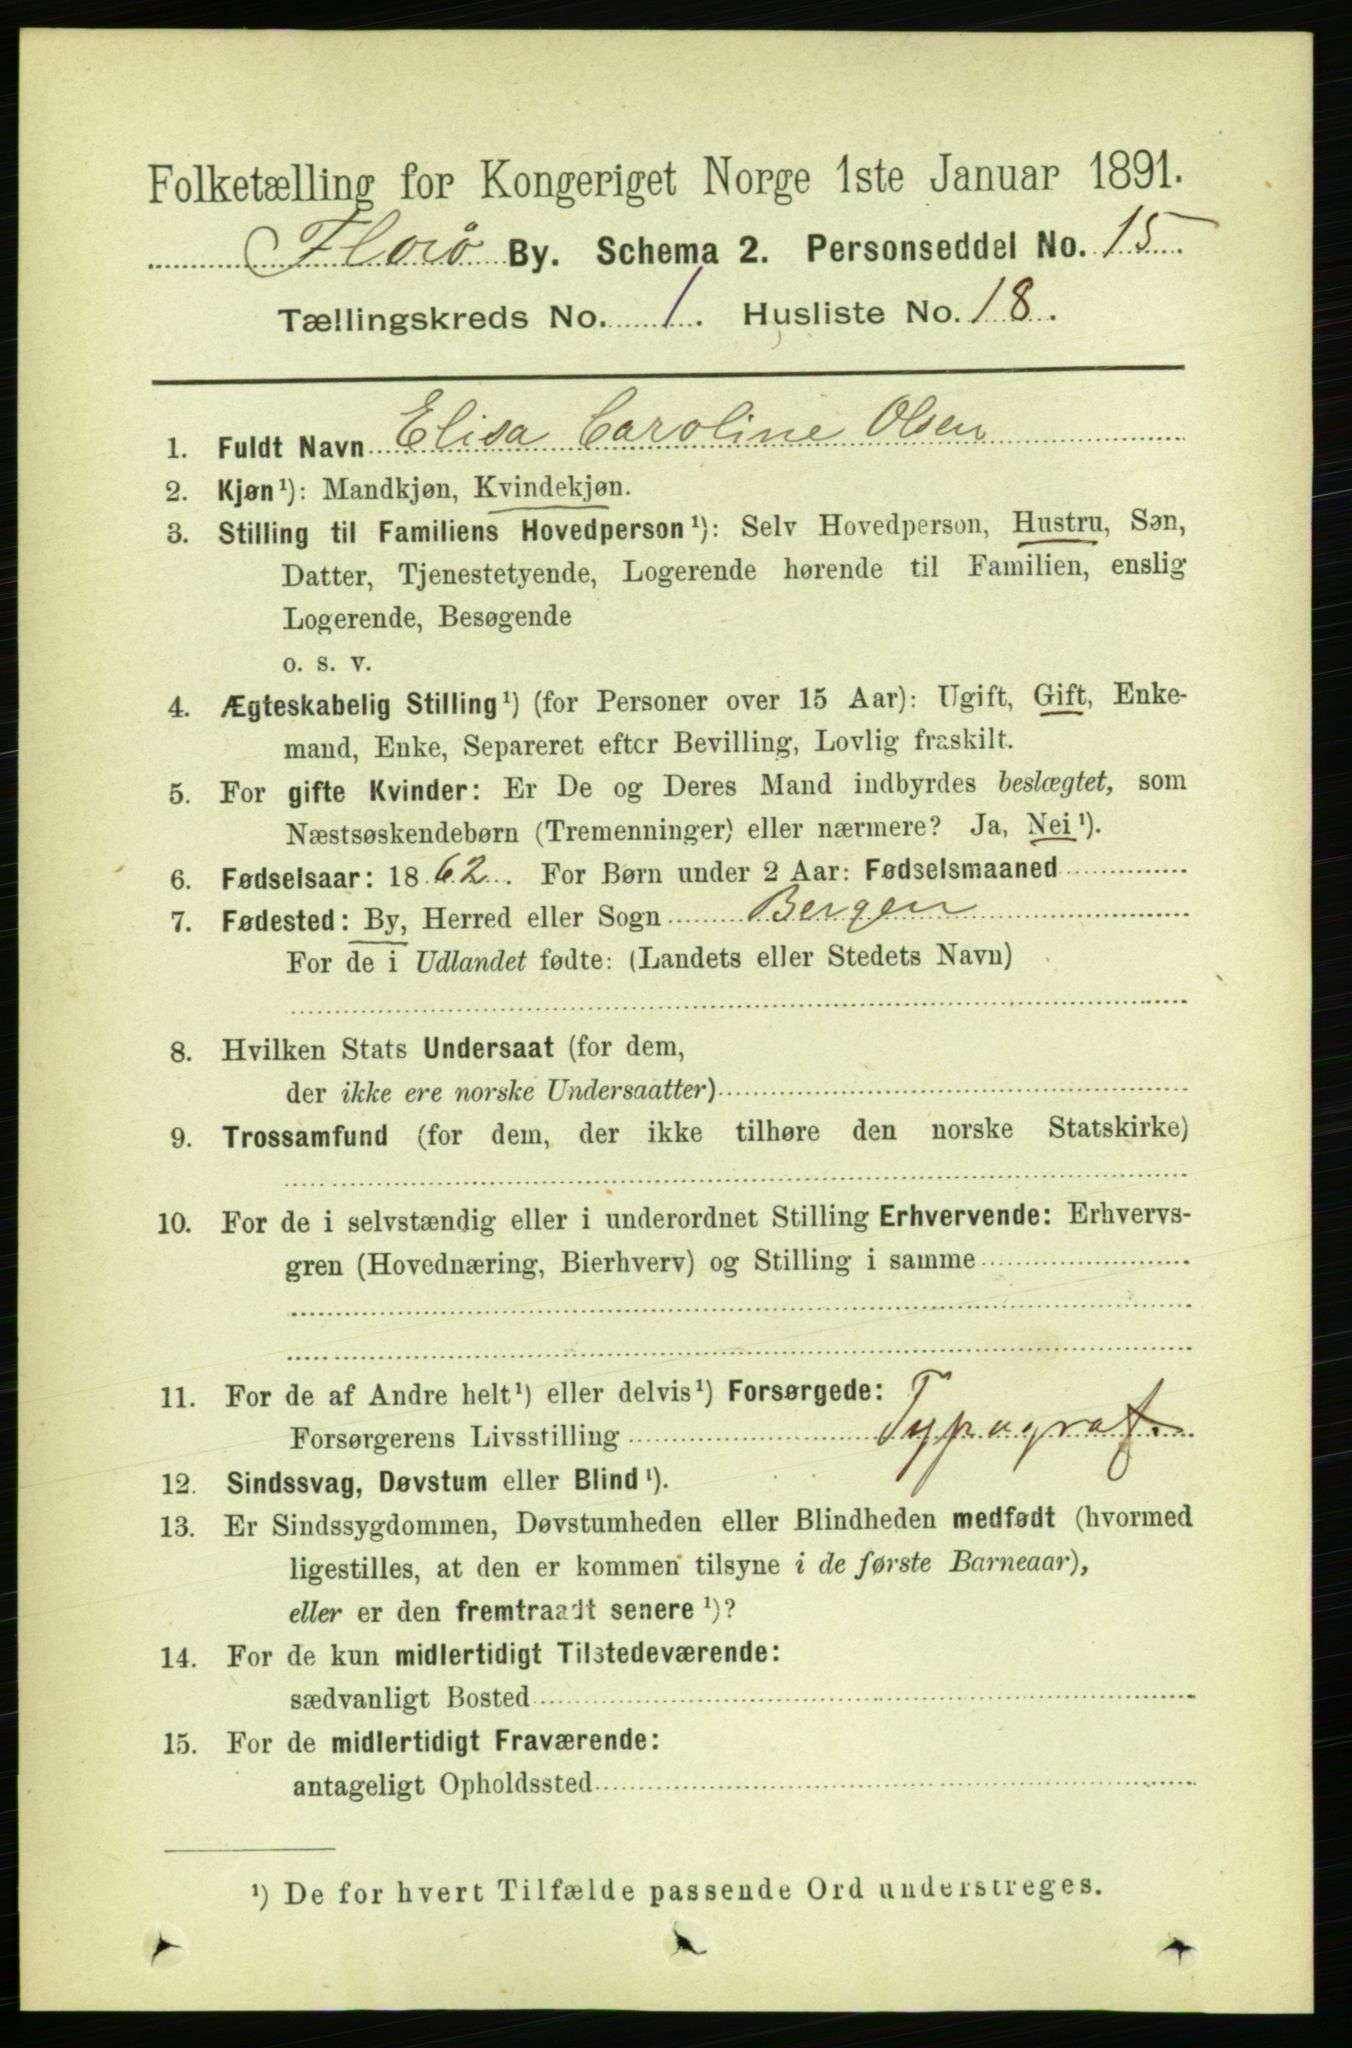 Folketælling for Kongeriget Norge 1ste Januar 1891.
Florø By. Schema 2. Personseddel No. 15.
Tællingskreds No. 1. Husliste No. 18.
1. Fuldt Navn Elisa Caroline Olsen
2. Kjøn¹): Mandkjøn, Kvindekjøn.
3. Stilling til Familiens Hovedperson¹): Selv Hovedperson, Hustru, Søn,
Datter, Tjenestetyende, Logerende hørende til Familien, enslig
Logerende, Besøgende
o. s. v.
4. Ægteskabelig Stilling¹) (for Personer over 15 Aar): Ugift, Gift, Enke-
mand, Enke, Separeret efter Bevilling, Lovlig fraskilt.
5. For gifte Kvinder: Er De og Deres Mand indbyrdes beslægtet, som
Næstsøskendebørn (Tremenninger) eller nærmere? Ja, Nei¹).
6. Fødselsaar: 1862. For Børn under 2 Aar: Fødselsmaaned
7. Fødested: By, Herred eller Sogn Bergen
For de i Udlandet fødte: (Landets eller Stedets Navn)
8. Hvilken Stats Undersaat (for dem,
der ikke ere norske Undersaatter)
9. Trossamfund (for dem, der ikke tilhøre den norske Statskirke)
10. For de i selvstændig eller i underordnet Stilling Erhvervende: Erhvervs-
gren (Hovednæring, Bierhverv) og Stilling i samme
11. For de af Andre helt¹) eller delvis¹) Forsørgede:
Forsørgerens Livsstilling Typograf.
12. Sindssvag, Døvstum eller Blind¹).
13. Er Sindssygdommen, Døvstumheden eller Blindheden medfødt (hvormed
ligestilles, at den er kommen tilsyne i de første Barneaar),
eller er den fremtraadt senere¹)?
14. For de kun midlertidigt Tilstedeværende:
sædvanligt Bosted
15. For de midlertidigt Fraværende:
antageligt Opholdssted
¹) De for hvert Tilfælde passende Ord understreges.